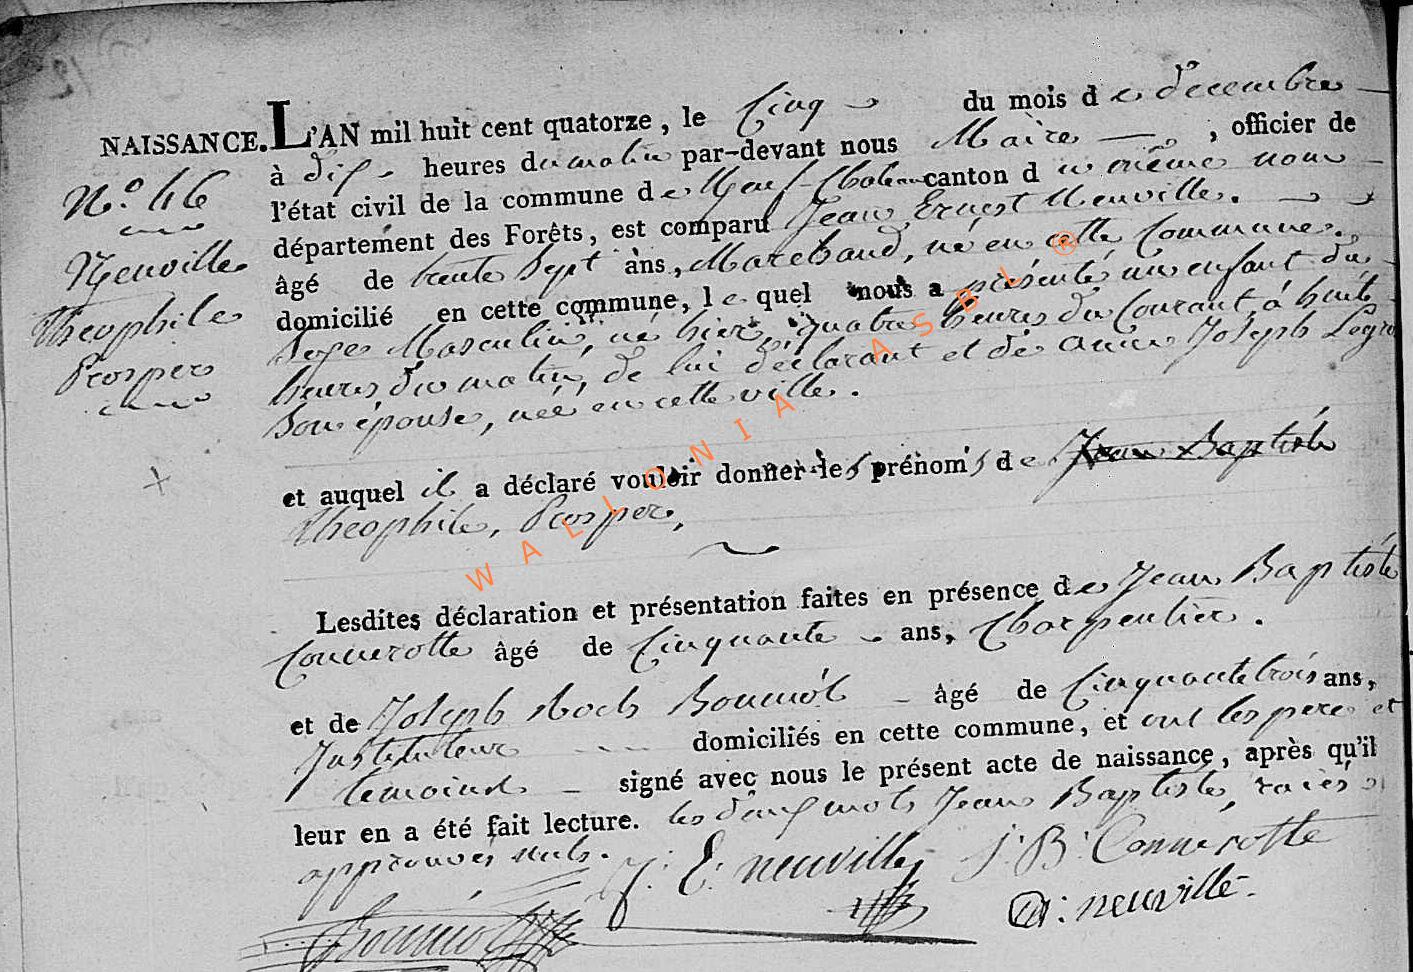 NAISSANCE. L'AN mil huit cent quatorze, le Cinq du mois de décembre
à dix heures du matin par-devant nous Maire, officier de
l'état civil de la commune de Neuf-Chateau canton du même nom
département des Forêts, est comparu Jean Ernest Neuville.
âgé de trente Sept ans, Marchand, né en cette Commune.
domicilié en cette commune, le quel nous a présenté un enfant du
Sexe Masculin, né hier, quatre du Courant, à huit
heures du matin, de lui déclarant et de Joseph
Son épouse, née en cette ville.
et auquel il a déclaré vouloir donner les prénoms de Jean Baptiste
Theophile, Prosper,
Lesdites déclaration et présentation faites en présence de Jean Baptiste
Connerotte âgé de Cinquante ans, Charpentier.
et de Joseph Roch Bonmôt âgé de Cinquante trois ans,
Instituteur domiciliés en cette commune, et ont les pere et
temoins signé avec nous le présent acte de naissance, après qu'il
leur en a été fait lecture. les deux mots Jean Baptiste, raiés
approuvés nuls.
J: E: neuville J: B: Connerotte
neuville
N.º 46
Neuville
Theophile
Prosper
WALLONIA ASBL ®